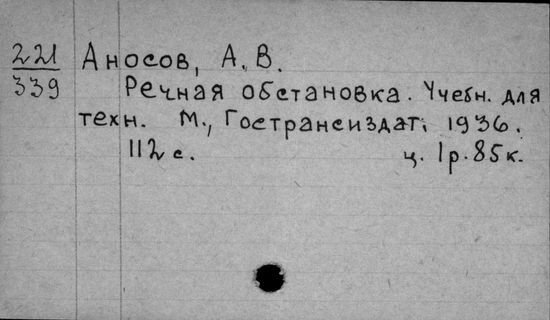 221 Аносов, А. В.
339 Речная обстановка. Учебн. для
техн. М., Гострансиздат, 1936.
112 с. ц. 1р.85к.